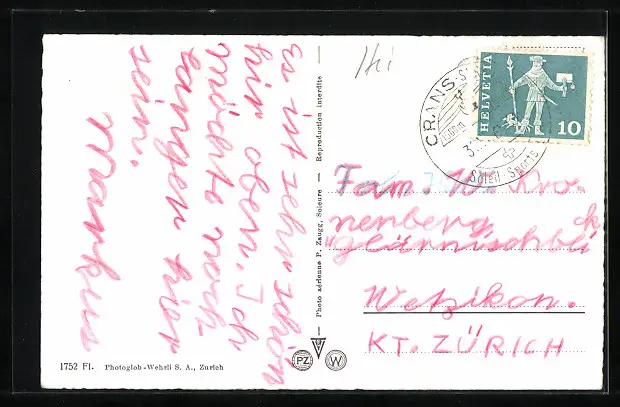 Es ist sehr schön
hir oben. Ich
möchte noch
langen hier
sein.
Markus
Hi
CRANS
Soleil - Sports
HELVETIA
10
Fam. W. Kro-
nenberg,
"glärnischbli
Wetzikon.
KT. ZÜRICH
Photo aérienne P. Zaugg, Soleure - Reproduction interdite
1752 Fl. Photoglob-Wehrli S. A., Zurich
PZ
W